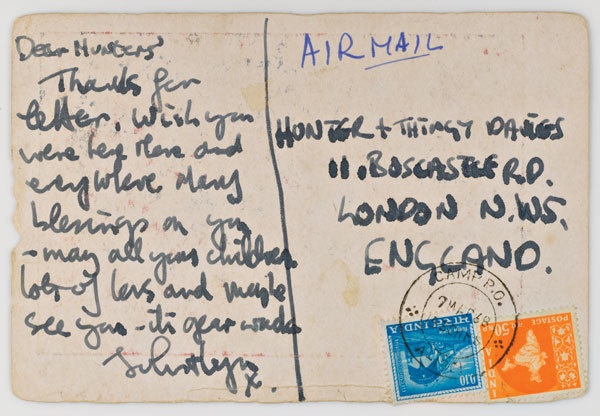 Dear Hunters'
Thanks for
letter. Wish you
were here there and
everywhere Many
blessings on you
- may all your children
lots of love and maybe
see you - its gear
John
x.
AIR MAIL
HUNTER + THINGY DAVIES
11, BOSCASTLE RD.
LONDON N.W5,
ENGLAND.
CAMP P.O.
भारत INDIA
0.10
POSTAGE
50